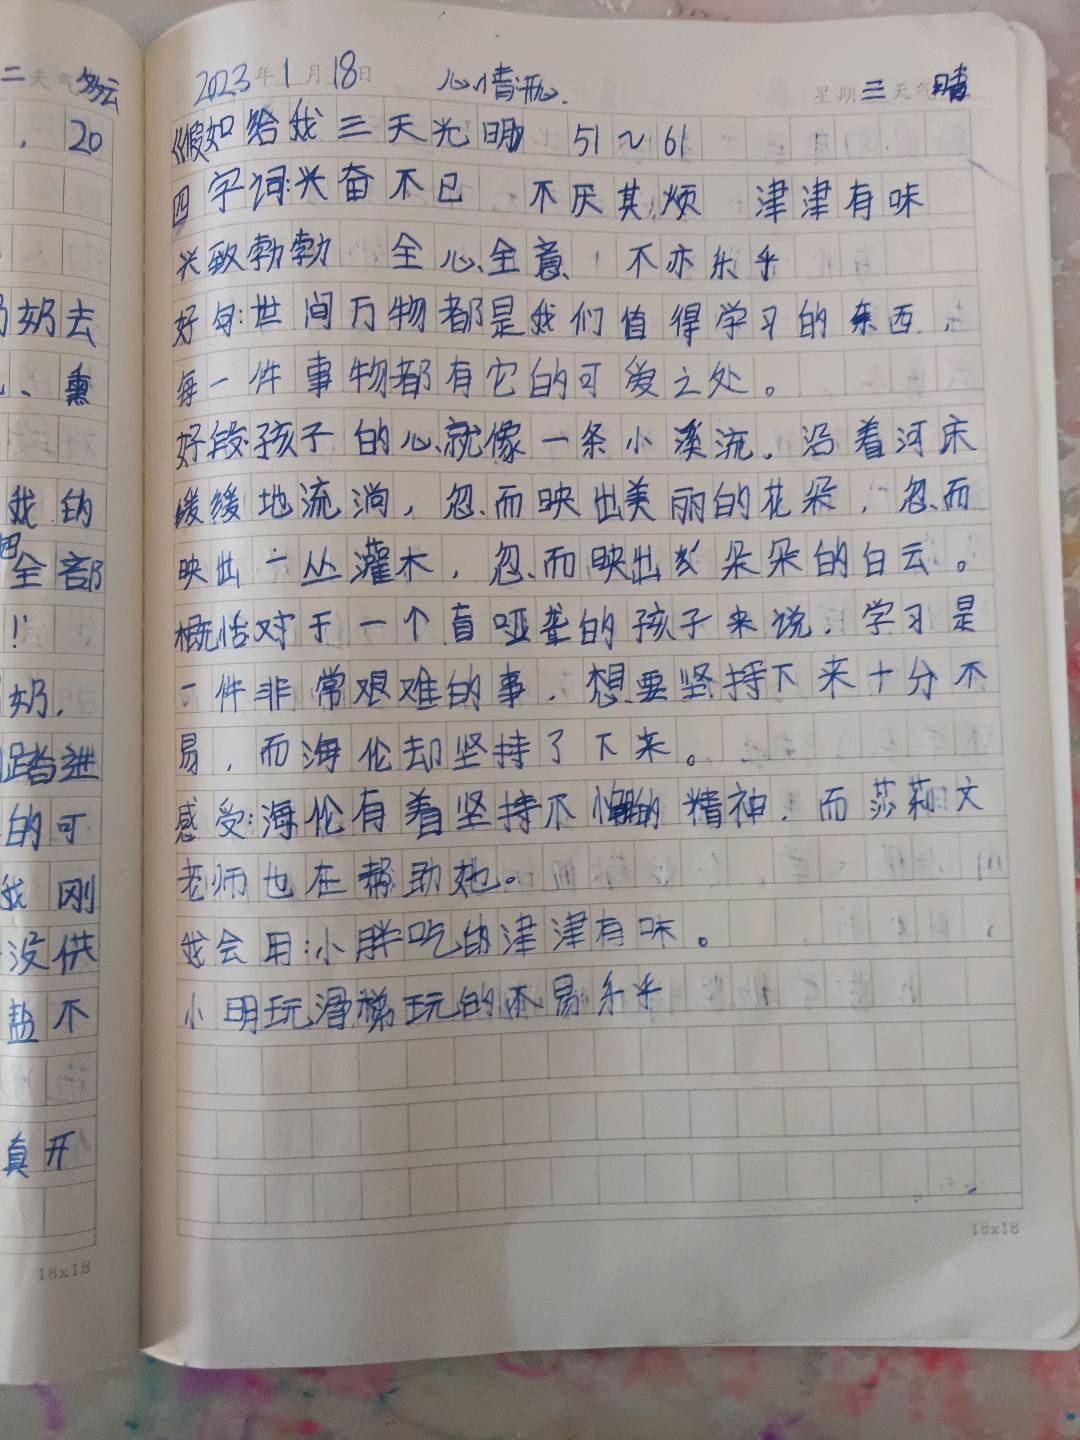 二 天气 多云
，20
奶奶去
、熏
我的
把全部
！
奶，
踏进
的可
我刚
没供
盐不
真开
18×18
2023年1月18日 心情 星期三 天气晴
《假如给我三天光明 51~61
四字词:兴奋不已 不厌其烦 津津有味
兴致勃勃 全心全意 不亦乐乎
好句:世间万物都是我们值得学习的东西，
每一件事物都有它的可爱之处。
好段:孩子的心就像一条小溪流，沿着河床
缓缓地流淌，忽而映出美丽的花朵，忽而
映出一丛灌木，忽而映出朵朵的白云。
概括对于一个盲哑聋的孩子来说，学习是
一件非常艰难的事，想要坚持下来十分不
易，而海伦却坚持了下来。
感受:海伦有着坚持不懈的精神，而莎莉文
老师也在帮助她。
我会用:小胖吃的津津有味。
小明玩滑梯玩的不易乐乎
18×18